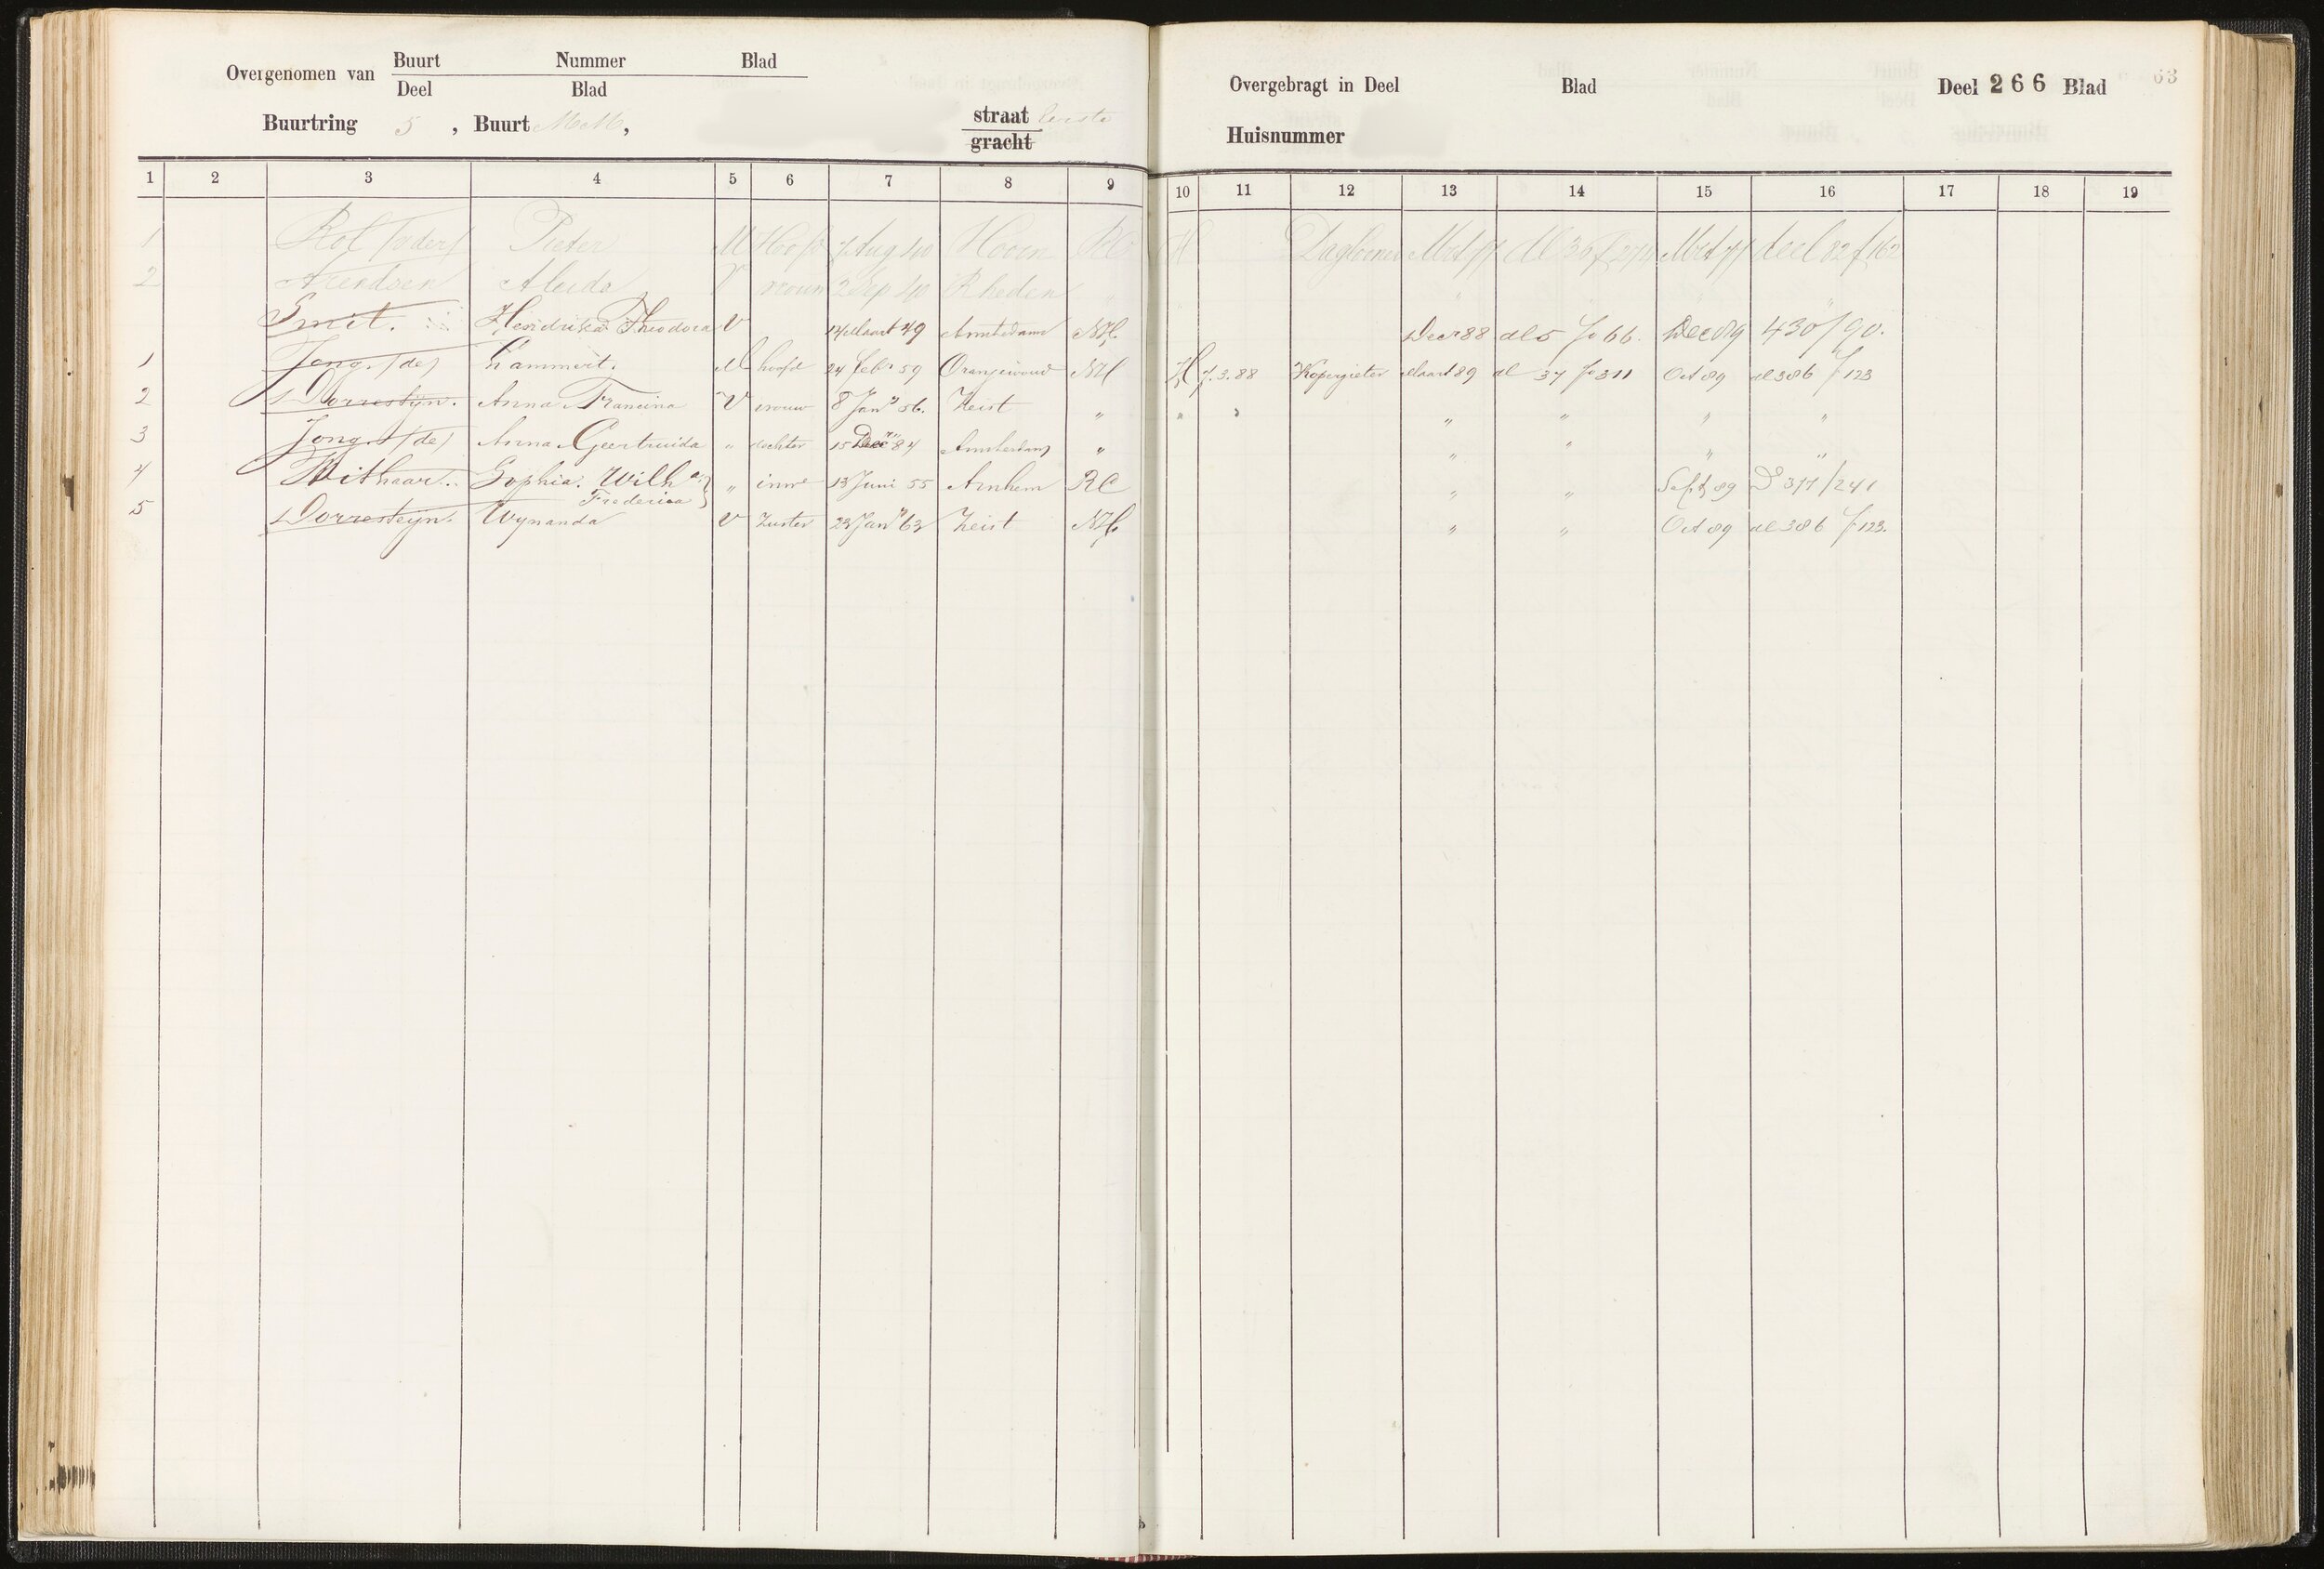 Overgenomen van Buurt Nummer Blad
Deel Blad
Buurtring 5, Buurt MM, straat Eerste
gracht
Overgebragt in Deel Blad Deel 266 Blad 63
Huisnummer
1 2 3 4 5 6 7 8 9 10 11 12 13 14 15 16 17 18 19
1 Rol Pieter M Hoofd 7 Aug 40 Hoorn RC H Daglooner
2 Arendsen Aleida V vrouw 2 Sep 40 Rheden "
Smit. Hendrika Theodora V Maart 49 Amsterdam NH. Decr 88 dl 5 fo 66. Dec 89 430/90.
1 Jong (de) Lammert. M hoofd 24 Febr 59 Oranjewoud NH H 7.3.88 Kopergieter Maart 89 dl 37 fo 311 Oct 89 dl 386 f 123
2 Dorresteijn. Anna Francina V vrouw 8 Jan 56. Zeist " " " " " " "
3 Jong (de) Anna Geertruida " dochter 15 Dec 84 Amsterdam " " " " "
4 Withaar. Sophia Wilha Frederica " inwe 13 Juni 55 Arnhem RC " " Sept 89 D 377/241
5 Dorresteijn. Wynanda V Zuster 23 Jan 63 Zeist NH. " " Oct 89 dl 386 f 123.